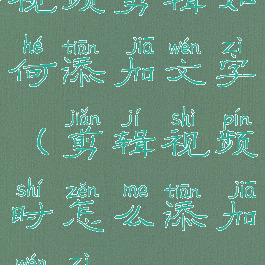 视频剪辑如
hé tiān jiā wén zì
何添加文字
jiǎn jí shì pín
（剪辑视频
shí zěn me tiān jiā
时怎么添加
wén zì